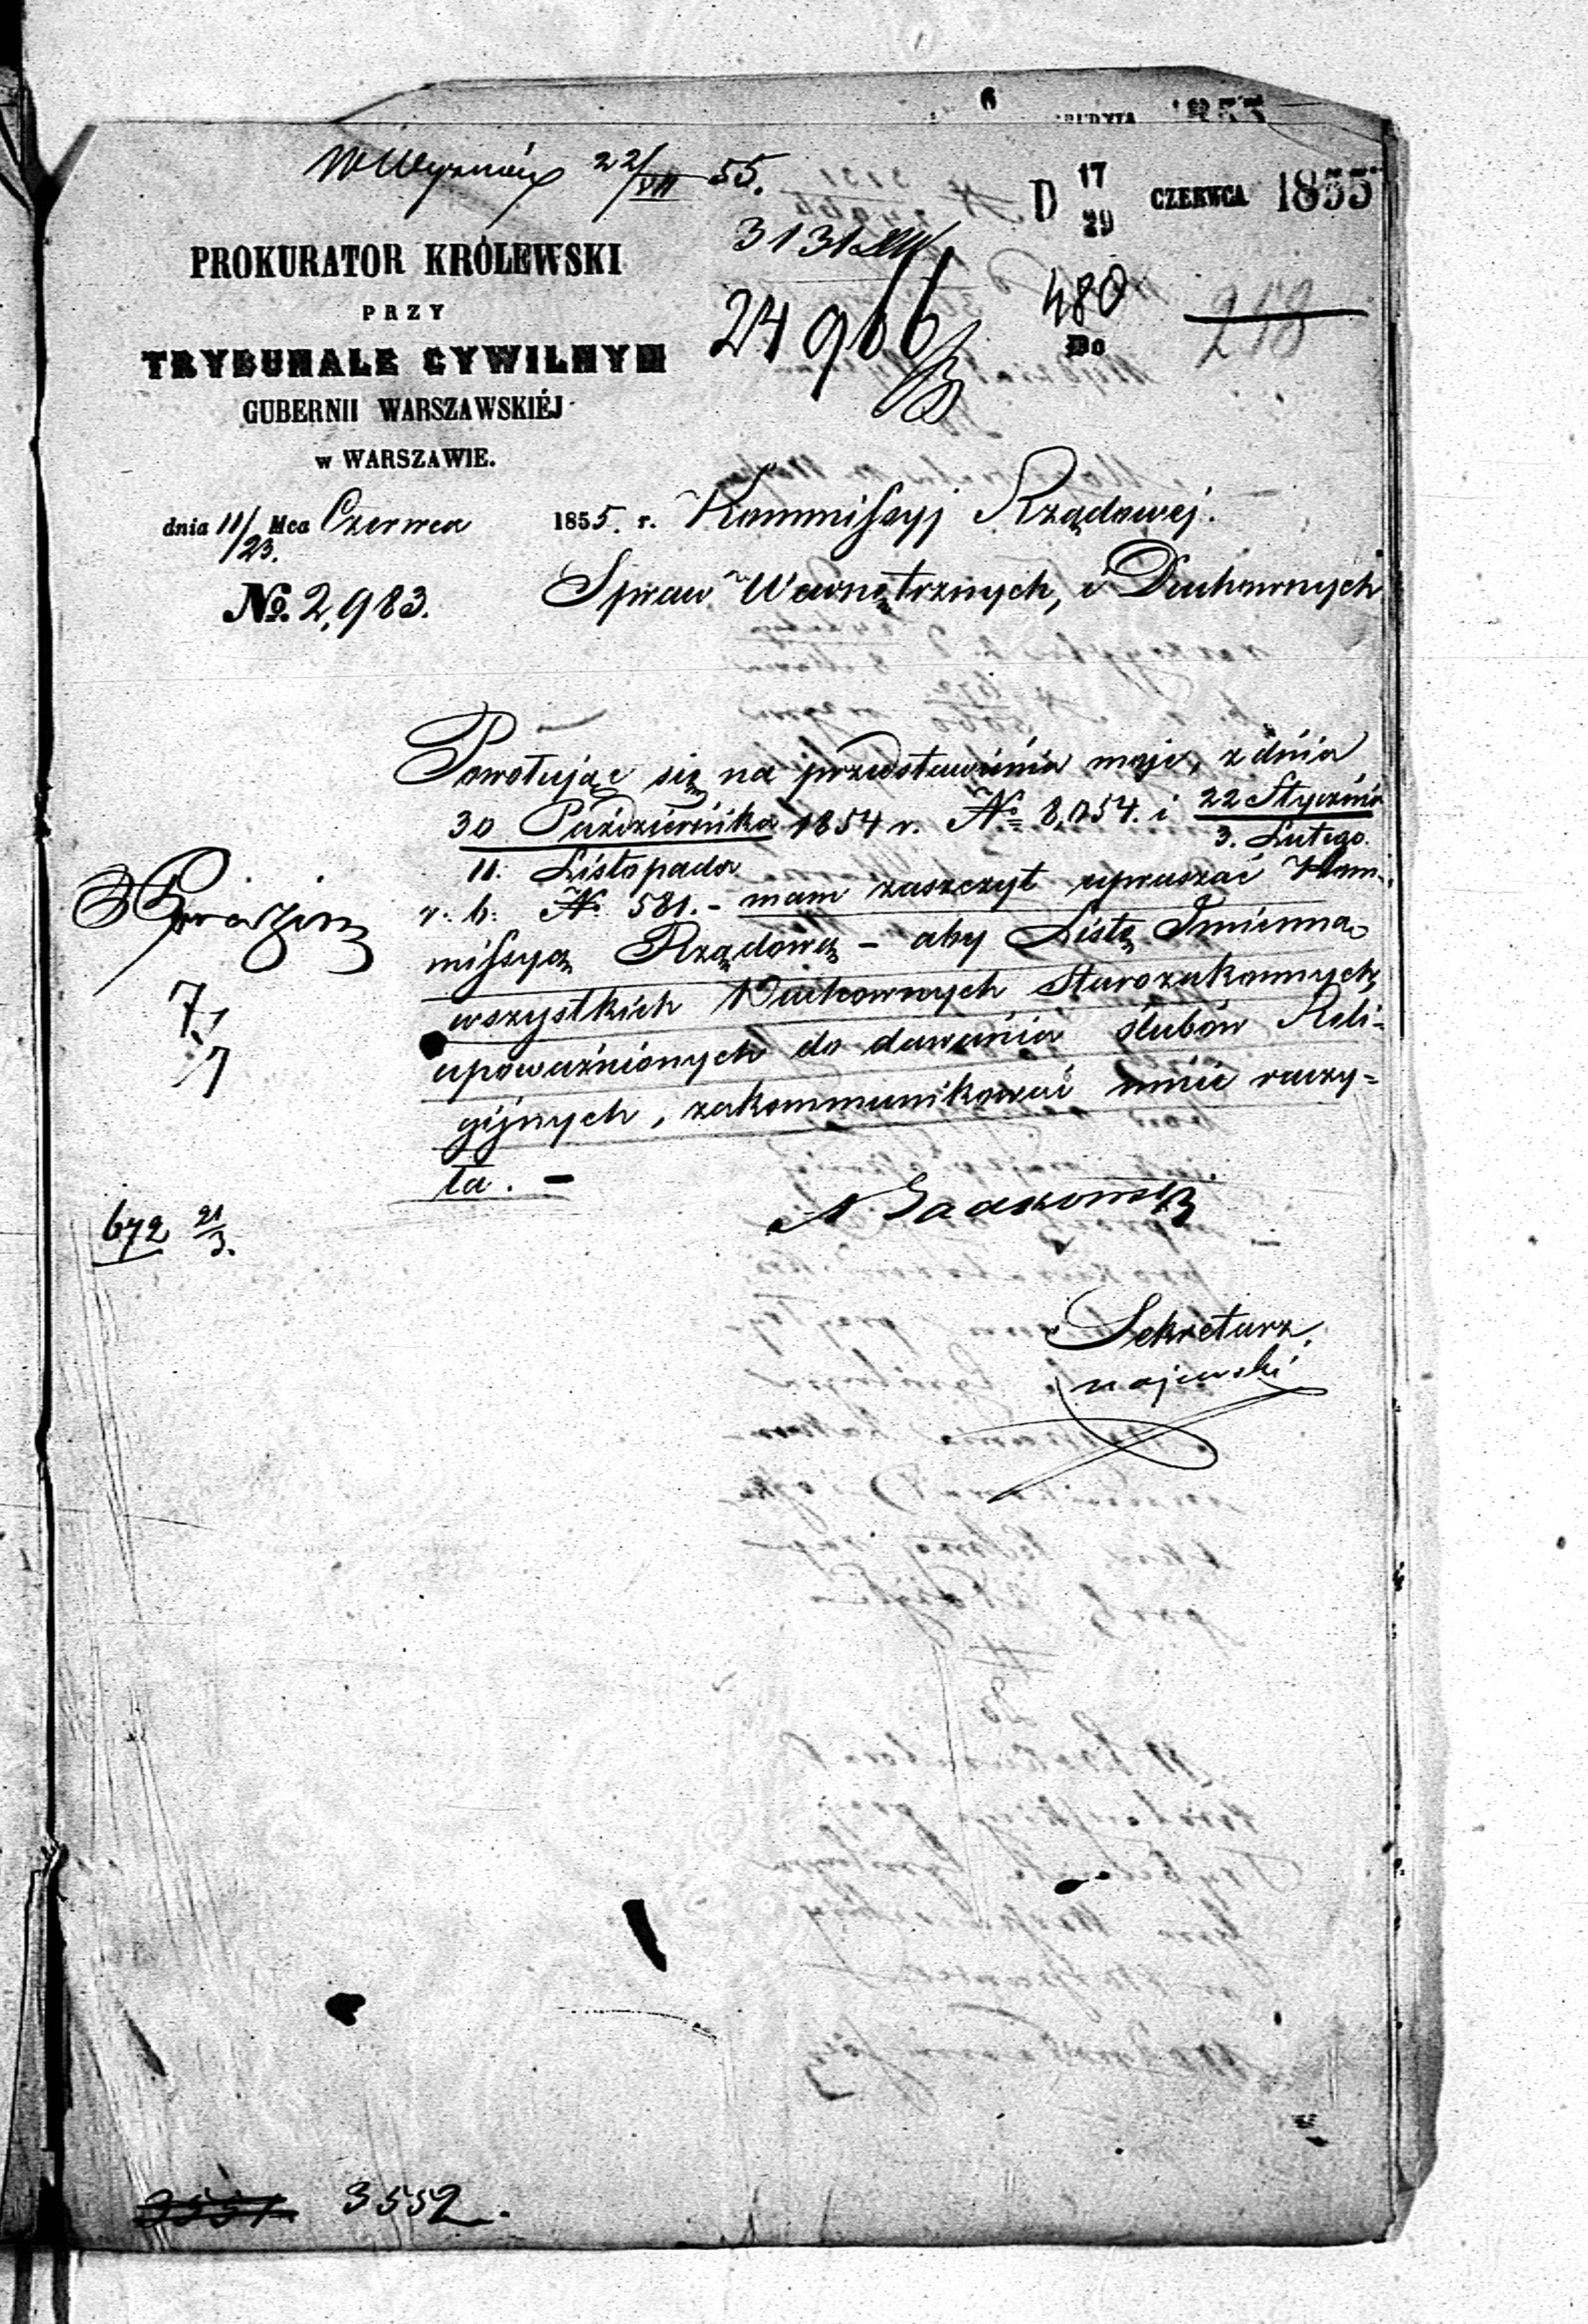 6
1855
22/VII 55.
D 17/29 CZERWCA 1855
3131
PROKURATOR KRÓLEWSKI
PRZY
24966
480
218
Do
TRYBUNALE CYWILNYM
GUBERNII WARSZAWSKIÉJ
w WARSZAWIE.
dnia 11/23. Mca Czerwca 1855. r. Kommissyj Rządowej.
Spraw Wewnętrznych, i Duchownych
No. 2,983.
Powołując się na przedstawienia moje, z dnia
30 Października 1854 r. No 8,054. i 22 Stycznia
11. Listopada 3. Lutego.
r. b. No 581. - mam zaszczyt upraszać Kom-
missyą Rządową - aby Listę Imienną
wszystkich Duchownych Starozakonnych,
upoważnionych do dawania ślubów Reli-
gijnych, zakommunikować mnie raczy=
ła. -
7/7
672 21/3.
Sekretarz
3551 3552.